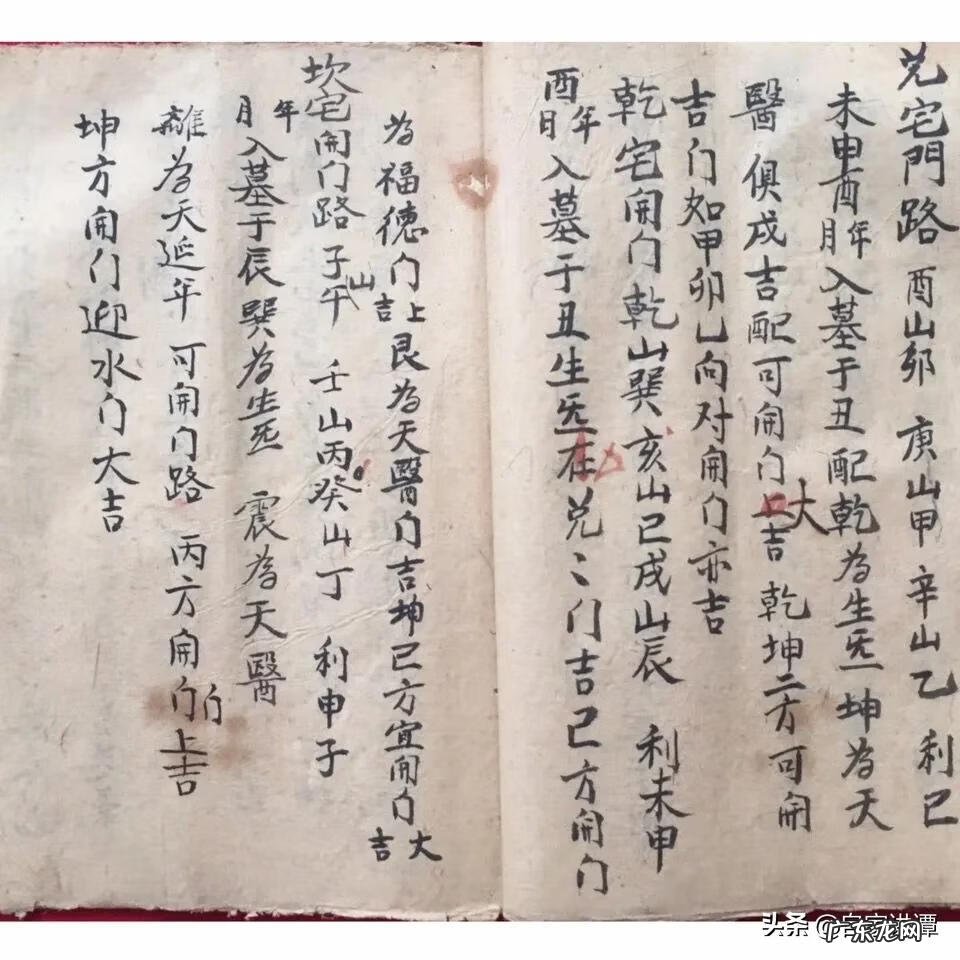 兑宅門路 酉山卯 庚山甲 辛山乙 利巳
未申酉年月入墓于丑配乾為生炁坤為天
醫俱成吉配可開门大吉 乾坤二方可開
吉门如甲卯乙向对開门亦吉
乾宅開门乾山巽亥山巳戌山辰 利未申
酉年月入墓于丑生炁在兑〻门吉巳方開门
為福德门上吉艮為天醫门吉坤巳方宜開门大吉
坎宅開门路子山午 壬山丙癸山丁 利申子
年月入墓于辰巽為生炁 震為天醫
離為天延年 可開门路 丙方開门上吉
坤方開门迎水门大吉
头条
广东龙网